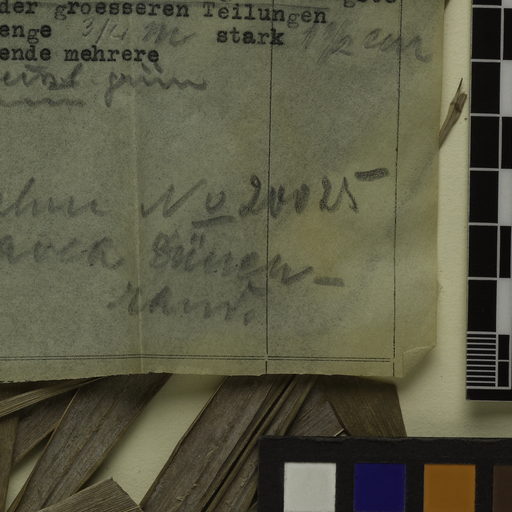 der groesseren Teilungen
enge 3/4 m stark 1 1/2 cm
ende mehrere
grün
No 20025
Dünen-
rand.